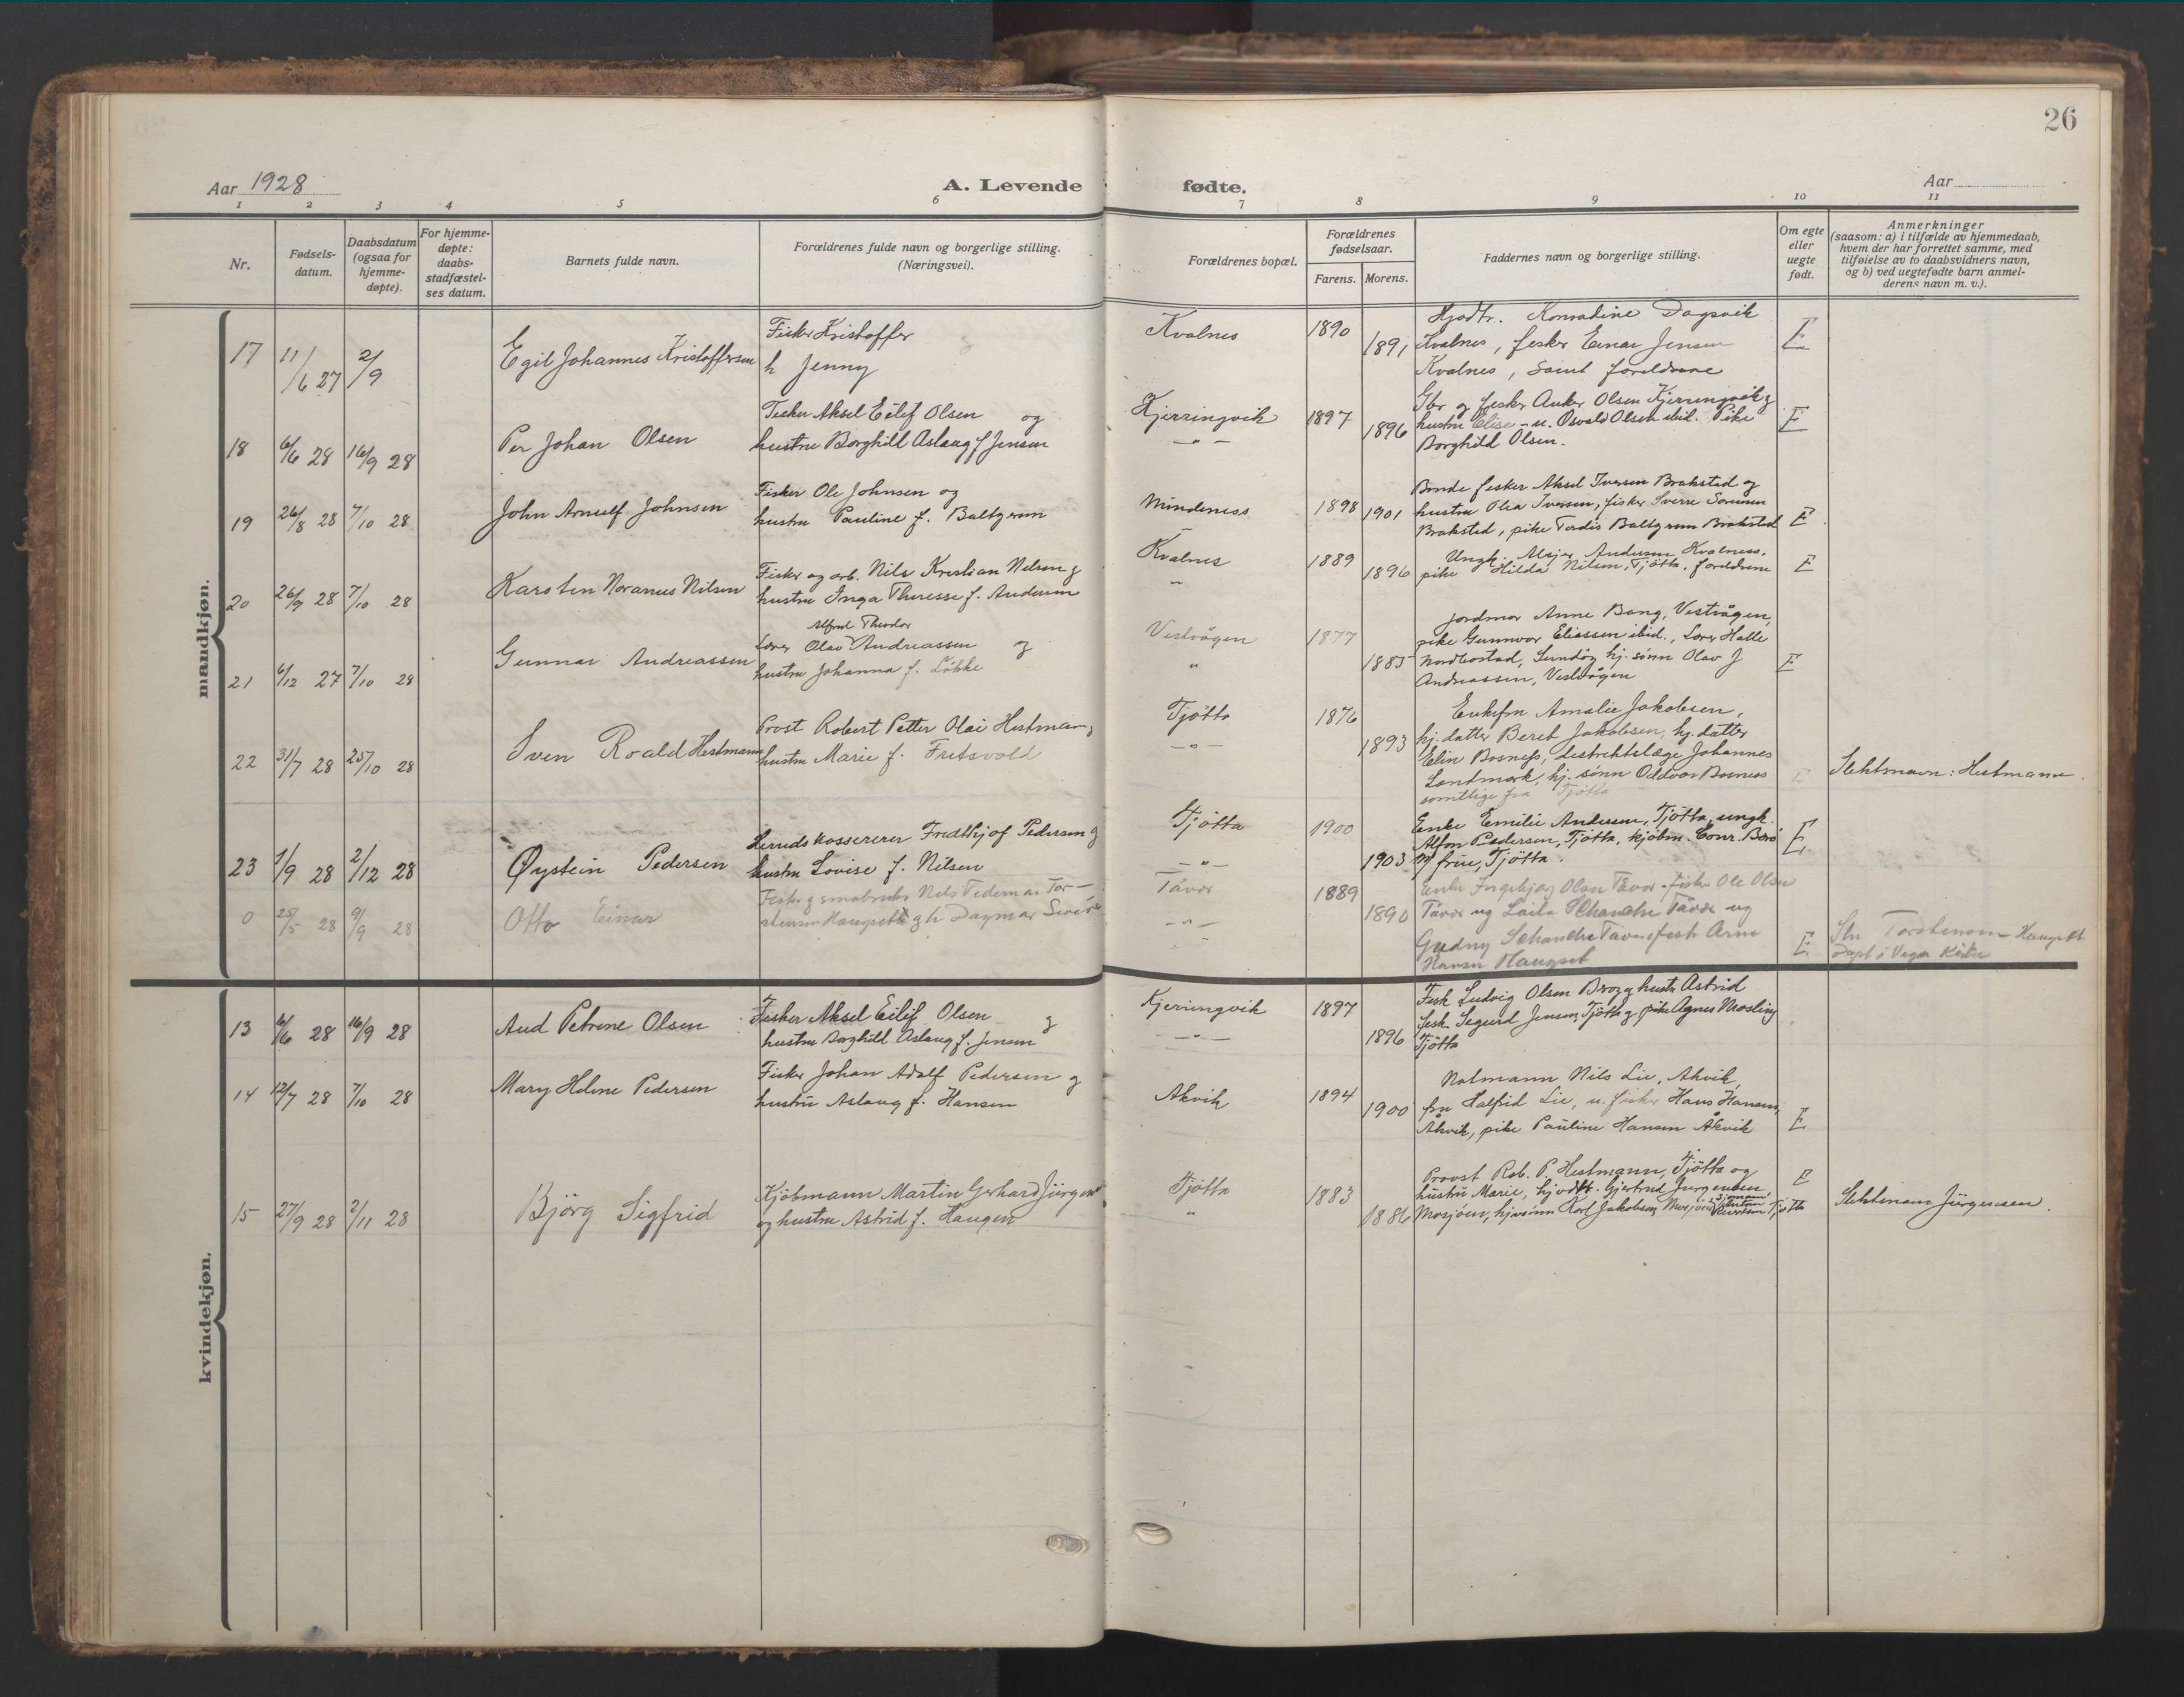 26
Aar 1928
A. Levende
fødte.
Aar
1 2 3 4 5 6 7 8 9 10 11
Nr.
Fødsels-
datum.
Daabsdatum
(ogsaa for
hjemme-
døpte).
For hjemme-
døpte:
daabs-
stadfæstel-
ses datum.
Barnets fulde navn.
Forældrenes fulde navn og borgerlige stilling.
(Næringsvei).
Forældrenes bopæl.
Forældrenes
fødselsaar.
Farens. Morens.
Faddernes navn og borgerlige stilling.
Om egte
eller
uegte
født.
Anmerkninger
(saasom: a) i tilfælde av hjemmedaab,
hvem der har forrettet samme, med
tilføielse av to daabsvidners navn,
og b) ved uegtefødte barn anmel-
derens navn m. v.).
mandkjøn.
17 11/6 27 2/9
Egil Johannes Kristoffersen
Fisker Kristoffer
h Jenny
Kvalnes
1890
1891
Hjvdtr. Konradine Dagsvik
Kvalnes, fisker Einar Jensen
Kvalnes, samt foreldrene
E
18 6/6 28 16/9 28
Per Johan Olsen
Fisker Aksel Eilif Olsen og
hustru Borghild Aslaug f Jensen
Kjerringvik
— " —
1897
1896
Gbr og fisker Anker Olsen Kjerringvik og
hustru Elise - u. Osvald Olsen ibid. Pike
Borghild Olsen.
E
19 26/8 28 7/10 28
John Arnulf Johnsen
Fisker Ole Johnsen og
hustru Pauline f. Baltzersen
Mindeness
1898
1901
Bonde fisker Aksel Iversen Brakstad og
hustru Olea Iversen, fisker Sverre Sørensen
Brakstad, pike Tordis Baltzersen Brakstad
E
20 26/9 28 7/10 28
Karsten Noranus Nilsen
Fisker og arb. Nils Kristian Nilsen og
hustru Inga Theresse f. Andersen
Kvalnes
"
1889
1896
Ungk. Andersen Kvalness,
pike Hilda Nilsen, Tjøtta, foreldrene
E
21 6/12 27 7/10 28
Gunnar Andreassen
Alfred Theodor
Lærer Olav Andreassen og
hustru Johanna f. Løbke
Vestvågen
"
1877
1885
Jordmor Anne Bang, Vestvågen,
pike Gunnvor Eliassen ibid., Lærer Halle
Nordbostad, Sundøy hj. sønn Olav J
Andreassen, Vestvågen
E
22 31/7 28 25/10 28
Sven Roald Hestmann
Prost Robert Petter Olai Hestmann og
hustru Marie f. Fretsvold
Tjøtta
— " —
1876
1893
Enkefru Amalie Jakobsen,
hj. datter Beret Jakobsen, hj. datter
Elin Bosness, distriktslæge Johannes
Landmark, hj. sønn Oddvar Bosness
samtlige fra Tjøtta
E
Slektnavn: Hestmann.
23 1/9 28 2/12 28
Øystein Pedersen
Herredskasserer Fredthjof Pedersen og
hustru Lovise f. Nilsen
Tjøtta
— " —
1900
1903
Enke Emilie Andersen, Tjøtta, ungk.
Alfon Pedersen, Tjøtta, kjøbm. Conr. Barö
m/ frue, Tjøtta.
E
0 25/5 28 9/9 28
Otto Einar
Fisker og småbruker Nils Tidemar Tor-
stensen Haugsett og h Dagmar
Tåvær
— " —
1889
1890
Enke Ingebjørg Olsen Tåvær - fisker Ole Olsen
Tåvær og Laila Schanche Tåvær og
Gudny Schanche Tåvær fisk Arne
Hansen Haugset
E
Sln Torstensen - Haugsett
døpt i Vega kirke
kvindekjøn.
13 6/6 28 16/9 28
Aud Petrine Olsen
Fisker Aksel Eilif Olsen og
hustru Borghild Aslaug f. Jensen
Kjerringvik
— " —
1897
1896
Fisk Ludvig Olsen Bro og hustr Astrid
fisk. Segurd Jensen, Tjøtta og pike Agnes Mosling
Tjøtta
14 12/7 28 7/10 28
Mary Helene Pedersen
Fisker Johan Adolf Pedersen og
hustru Aslaug f. Hansen
Akvik
1894
1900
Notmann Nils Lie, Akvik,
fru Halfrid Lie, u. fisker Hans Hansen,
Åkvik, pike Pauline Hansen Åkvik
E
15 27/9 28 2/11 28
Bjørg Sigfrid
Kjøbmann Martin Gerhard Jürgensen
og hustru Astrid f. Haugen
Tjøtta
"
1883
1886
Provst Rob. P. Hestmann, Tjøtta og
hustru Marie, hjvdtt. Gjertrud Jurgensen
Mosjøen, hjvsønn Karl Jakobsen Mosjøen, Tjøtta
E
Slektnavn Jürgensen.